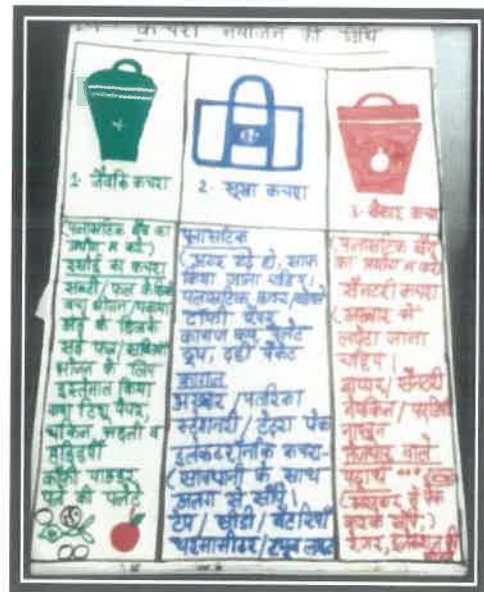 कचरा नियोजन की विधि
1- जैविक कचरा
(प्लासटिक बैग का
प्रयोग न करें)
रसोई का कचरा
सब्जी/फल के छिलके
बचा भोजन/पकाया
अंडे के छिलके
सड़े फल/सब्जियाँ
भोजन के लिए
इस्तेमाल किया
गया टिशू पेपर,
चिकिन मछली व
हड्डियाँ
कॉफी पाउडर
पत्ते की प्लेटें
2- सूखा कचरा
प्लासटिक
(अगर गंदे हो, साफ
किया जाना चहिए)
प्लासटिक कवर/बोतलें
टॉफी रैपर
कागज कप प्लेटें
दूध, दही पैकेट
कागज
अखबार/पतरिका
स्टेशनरी/टेट्रा पैक
इलैकटरॉनिक कचरा-
(सावधानी के साथ
अलग से सौंपे)
टेप/सीडी/बैटरियाँ
थर्मामीटर/ट्यूब लाइट
3- बेकार कचरा
(प्लासटिक बैग
का प्रयोग न करें)
सैनटरी कचरा
(अखबार में
लपेटा जाना
चहिए।
डायपर/सैनटरी
नेपकिन/पट्टियाँ
नाखून
पदार्थ
करके सौंपे)
रेजर, इंजेक्शन की